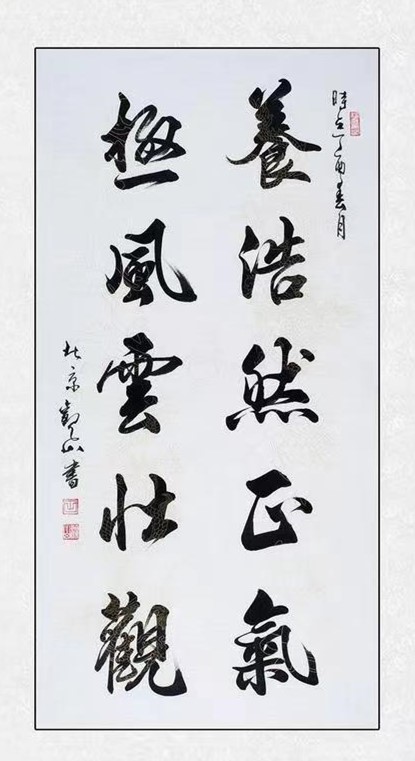 時在丁酉春月
養浩然正氣
極風雲壯觀
北京山書